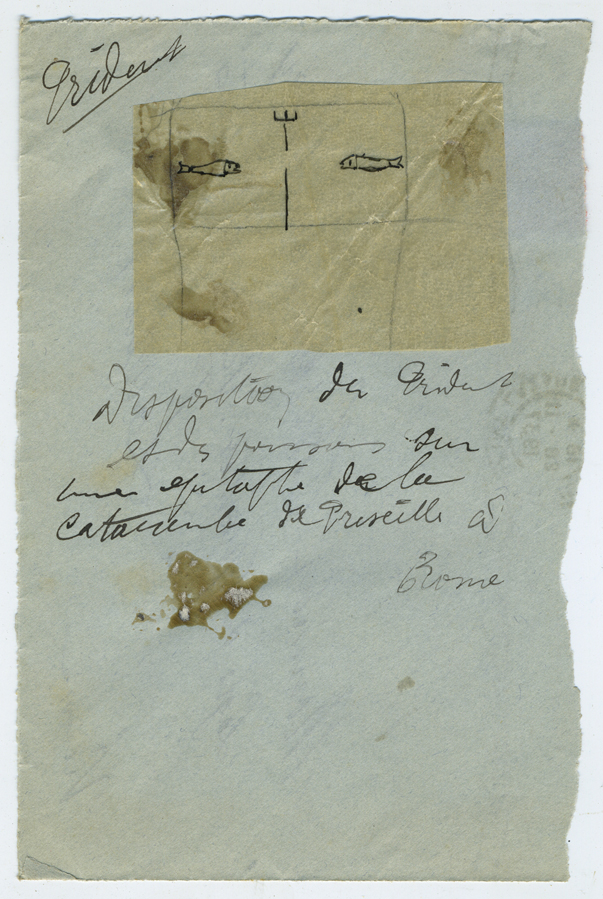 Trident
Disposition du Trident
et des poissons sur
une épitaphe de la
Catacombe de Priscille à
Rome